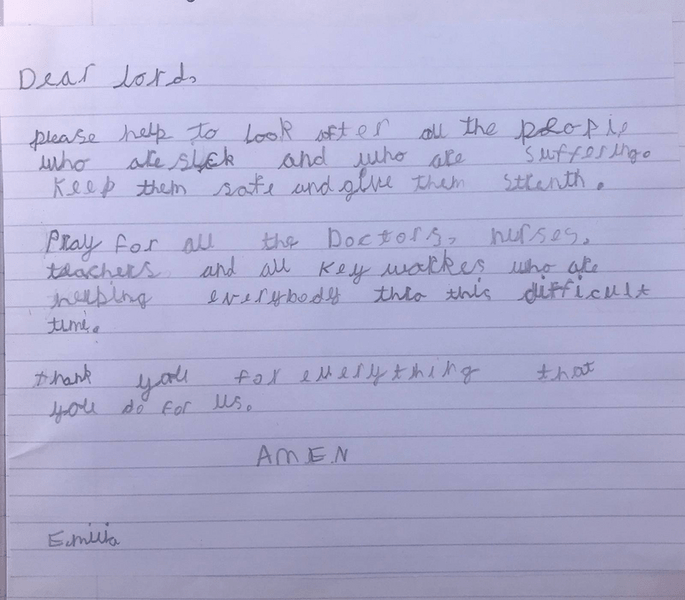 Dear lord,
please help to look after all the people
who are sick and who are suffering.
Keep them safe and give them strenth.
Pray for all the Doctors, nurses,
teachers and all key workes who are
helping everybody thro this difficult
time.
thank you for everything that
you do for us.
AMEN
Emilia